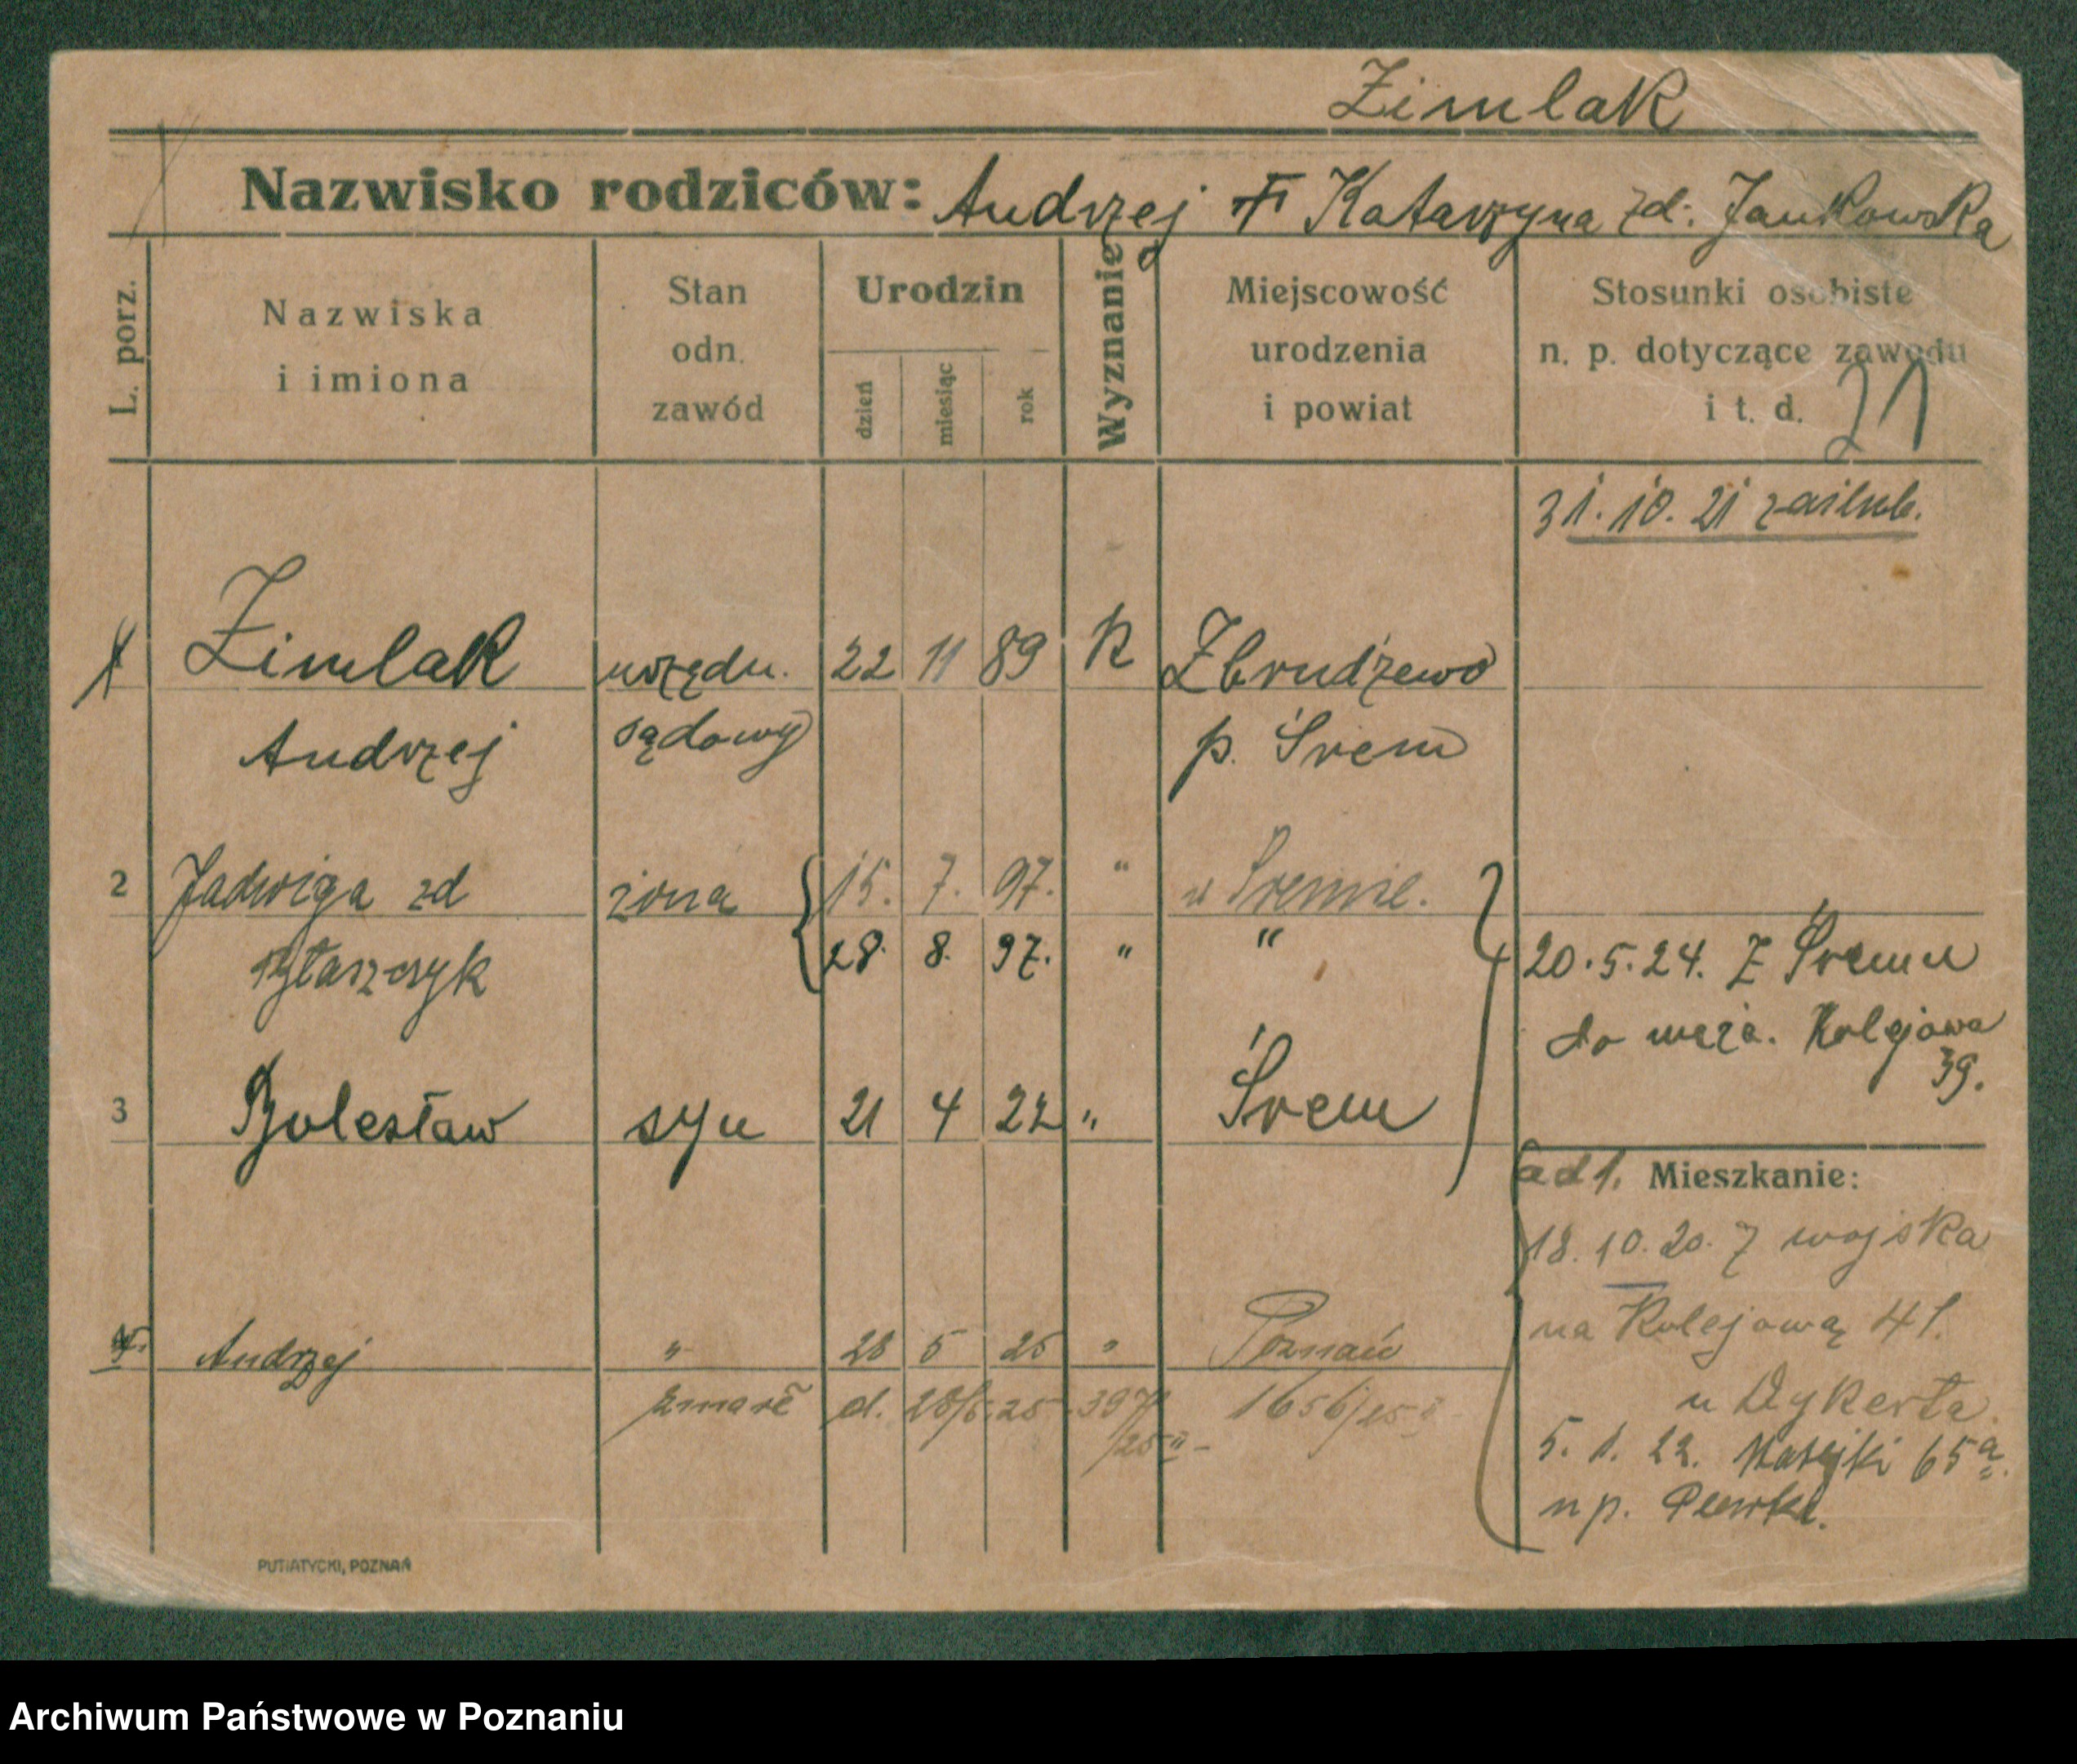 Zimlak
Nazwisko rodziców: Andrzej Katarzyna zd. Jankowska
L. porz.
Nazwiska
i imiona
Stan
odn.
zawód
Urodzin
dzień
miesiąc
rok
Wyznanie
Miejscowość
urodzenia
i powiat
Stosunki osobiste
n. p. dotyczące zawodu
i t. d.
21
31. 10. 21 zaślub.
1 Zimlak urzędn. 22 11 89 K Zbrudzewo
Andrzej sądowy p. Śrem
2 Jadwiga zd żona 15. 7. 97. " w Śremie.
28. 8. 97. " "
20. 5. 24. Z Śremu
do męża. Kolejowa
39.
3 Bolesław syn 21 4 22 " Śrem
ad 1. Mieszkanie:
18. 10. 20. z wojska
na Kolejową 41.
u Dykerta.
5. 1. 22. Matejki 65a.
u p.
4. Andrzej " 28 5 25 " Poznań
zmarł d. 28/5. 25 397/25 1656/25
PUTIATYCKI, POZNAŃ
Archiwum Państwowe w Poznaniu